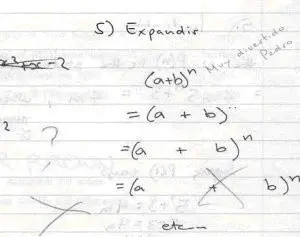 5) Expandir
x²+x-2
(a+b)ⁿ
Muy divertido
Pedro
= (a + b)¨
2
?
=(a + b)ⁿ
=(a + b)ⁿ
etc--